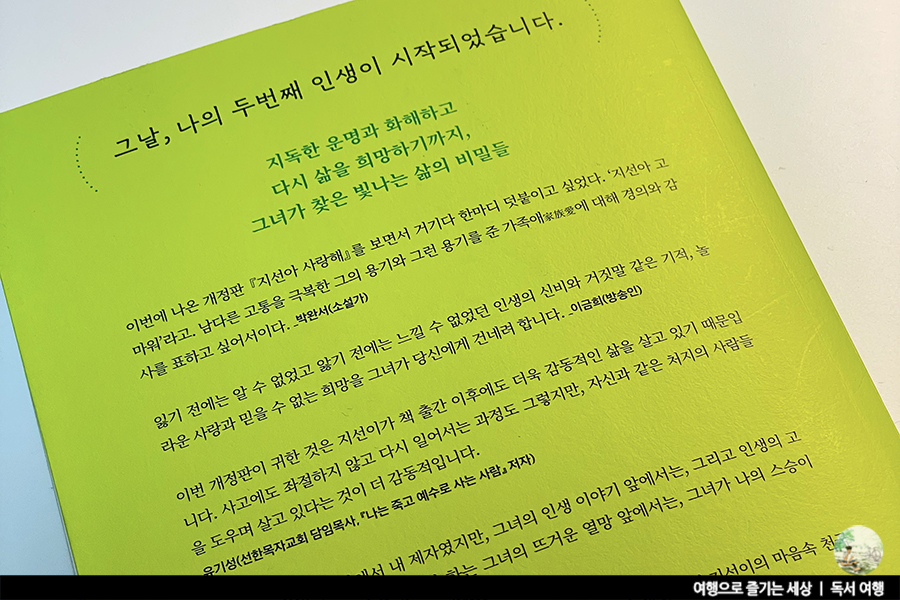 그날, 나의 두번째 인생이 시작되었습니다.
지독한 운명과 화해하고
다시 삶을 희망하기까지,
그녀가 찾은 빛나는 삶의 비밀들
이번에 나온 개정판 『지선아 사랑해』를 보면서 거기다 한마디 덧붙이고 싶었다. ‘지선아 고
마워’라고. 남다른 고통을 극복한 그의 용기와 그런 용기를 준 가족애家族愛에 대해 경의와 감
사를 표하고 싶어서이다. _박완서(소설가)
잃기 전에는 알 수 없었고 앓기 전에는 느낄 수 없었던 인생의 신비와 거짓말 같은 기적, 놀
라운 사랑과 믿을 수 없는 희망을 그녀가 당신에게 건네려 합니다. _이금희(방송인)
이번 개정판이 귀한 것은 지선이가 책 출간 이후에도 더욱 감동적인 삶을 살고 있기 때문입
니다. 사고에도 좌절하지 않고 다시 일어서는 과정도 그렇지만, 자신과 같은 처지의 사람들
을 도우며 살고 있다는 것이 더 감동적입니다.
유기성(선한목자교회 담임목사, 『나는 죽고 예수로 사는 사람』 저자)
내 제자였지만, 그녀의 인생 이야기 앞에서는, 그리고 인생의 고
하는 그녀의 뜨거운 열망 앞에서는, 그녀가 나의 스승이
지선이의 마음속
여행으로 즐기는 세상 | 독서 여행